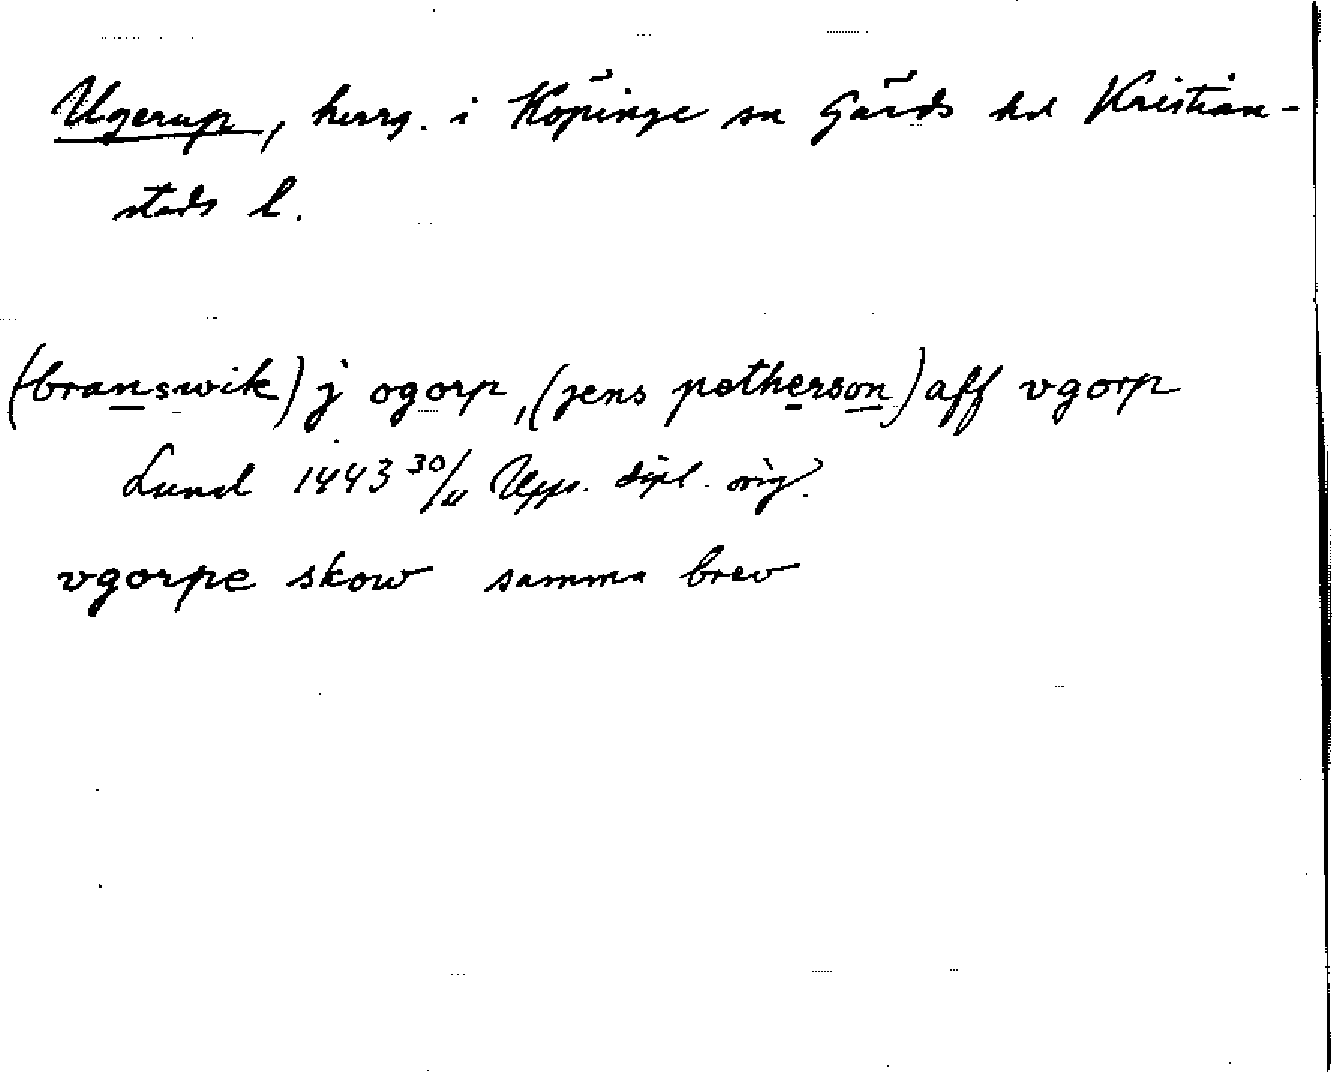 Ugerup, herrg. i Köpinge sn Gärds hd Kristian-
stads l.
(branswik) j ogorp, (jens petherson) aff vgorp
Lund 1443 30/11 Upps. dipl. orig.
vgorpe skow samma brev